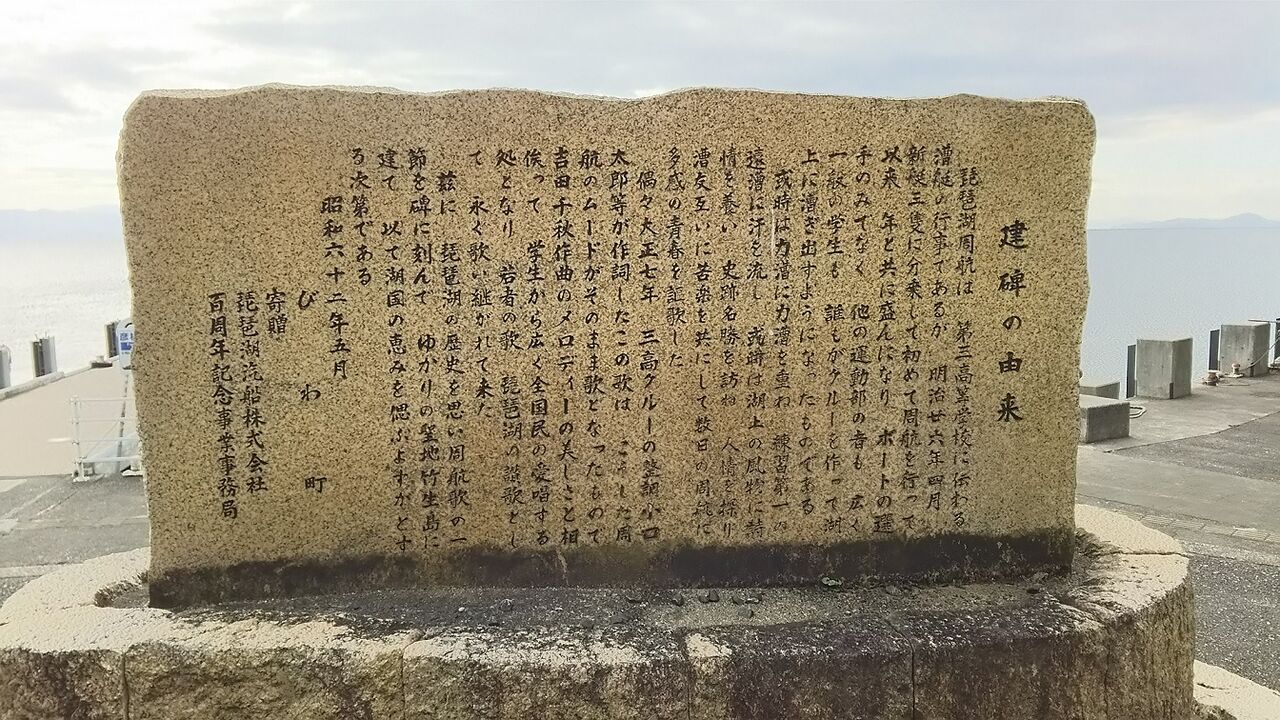 建碑の由来
琵琶湖周航は 第三高等学校に伝わる
漕艇の行事であるが 明治廿六年四月
新艇三隻に分乗して初めて周航を行って
以来 年と共に盛んになり ボートの選
手のみでなく 他の運動部の者も 広く
一般の学生も 誰もがクルーを作って湖
上に漕ぎ出すようになったものである
或時は力漕に力漕を重ね 練習第一の
遠漕に汗を流し 或時は湖上の風物に詩
情を養い 史跡名勝を訪ね 人情を探り
漕友互いに苦楽を共にして数日の周航に
多感の青春を謳歌した
偶々大正七年 三高クルーの整調小口
太郎等が作詞したこの歌は こうした周
航のムードがそのまま歌となったもので
吉田千秋作曲のメロディーの美しさと相
俟って 学生から広く全国民の愛唱する
処となり 若者の歌 琵琶湖の讃歌とし
て 永く歌い継がれて来た
茲に 琵琶湖の歴史を思い周航歌の一
節を碑に刻んで ゆかりの聖地竹生島に
建て 以て湖国の恵みを偲ぶよすがとす
る次第である
昭和六十二年五月
びわ町
寄贈
琵琶湖汽船株式会社
百周年記念事業事務局